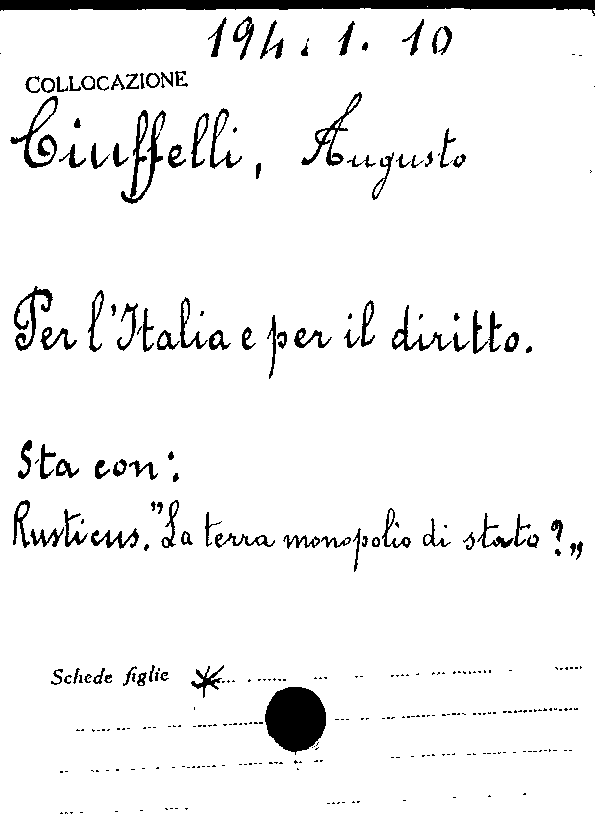 194. 1. 10
COLLOCAZIONE
Ciuffelli, Augusto
Per l'Italia e per il diritto.
Sta con:
Rusticus. "La terra monopolio di stato?"
Schede figlie *